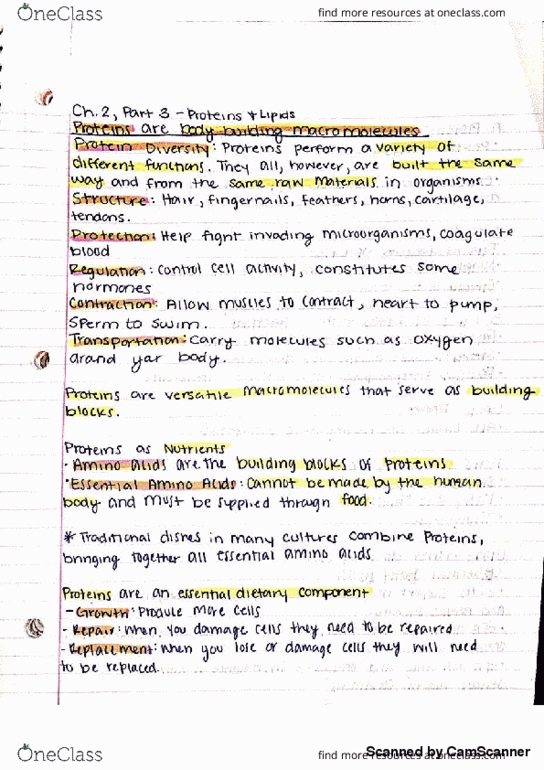 OneClass
find more resources at oneclass.com
Ch. 2, Part 3 - Proteins & Lipids
Proteins are body-building macromolecules
Protein Diversity: Proteins perform a variety of
different functions. They all, however, are built the same
way and from the same raw materials in organisms.
Structure: Hair, fingernails, feathers, horns, cartilage,
tendons.
Protection: Help fight invading microorganisms, coagulate
blood
Regulation: Control cell activity, constitutes some
hormones
Contraction: Allow muscles to contract, heart to pump,
sperm to swim.
Transportation: Carry molecules such as oxygen
around your body.
Proteins are versatile macromolecules that serve as building
blocks.
Proteins as Nutrients
· Amino acids are the building blocks of proteins
· Essential Amino Acids: Cannot be made by the human
body and must be supplied through food.
* Traditional dishes in many cultures combine Proteins,
bringing together all essential amino acids
Proteins are an essential dietary component
- Growth: Produce more cells
- Repair: When you damage cells they need to be repaired
- Replacement: When you lose or damage cells they will need
to be replaced.
OneClass
find more resources at oneclass.com
Scanned by CamScanner